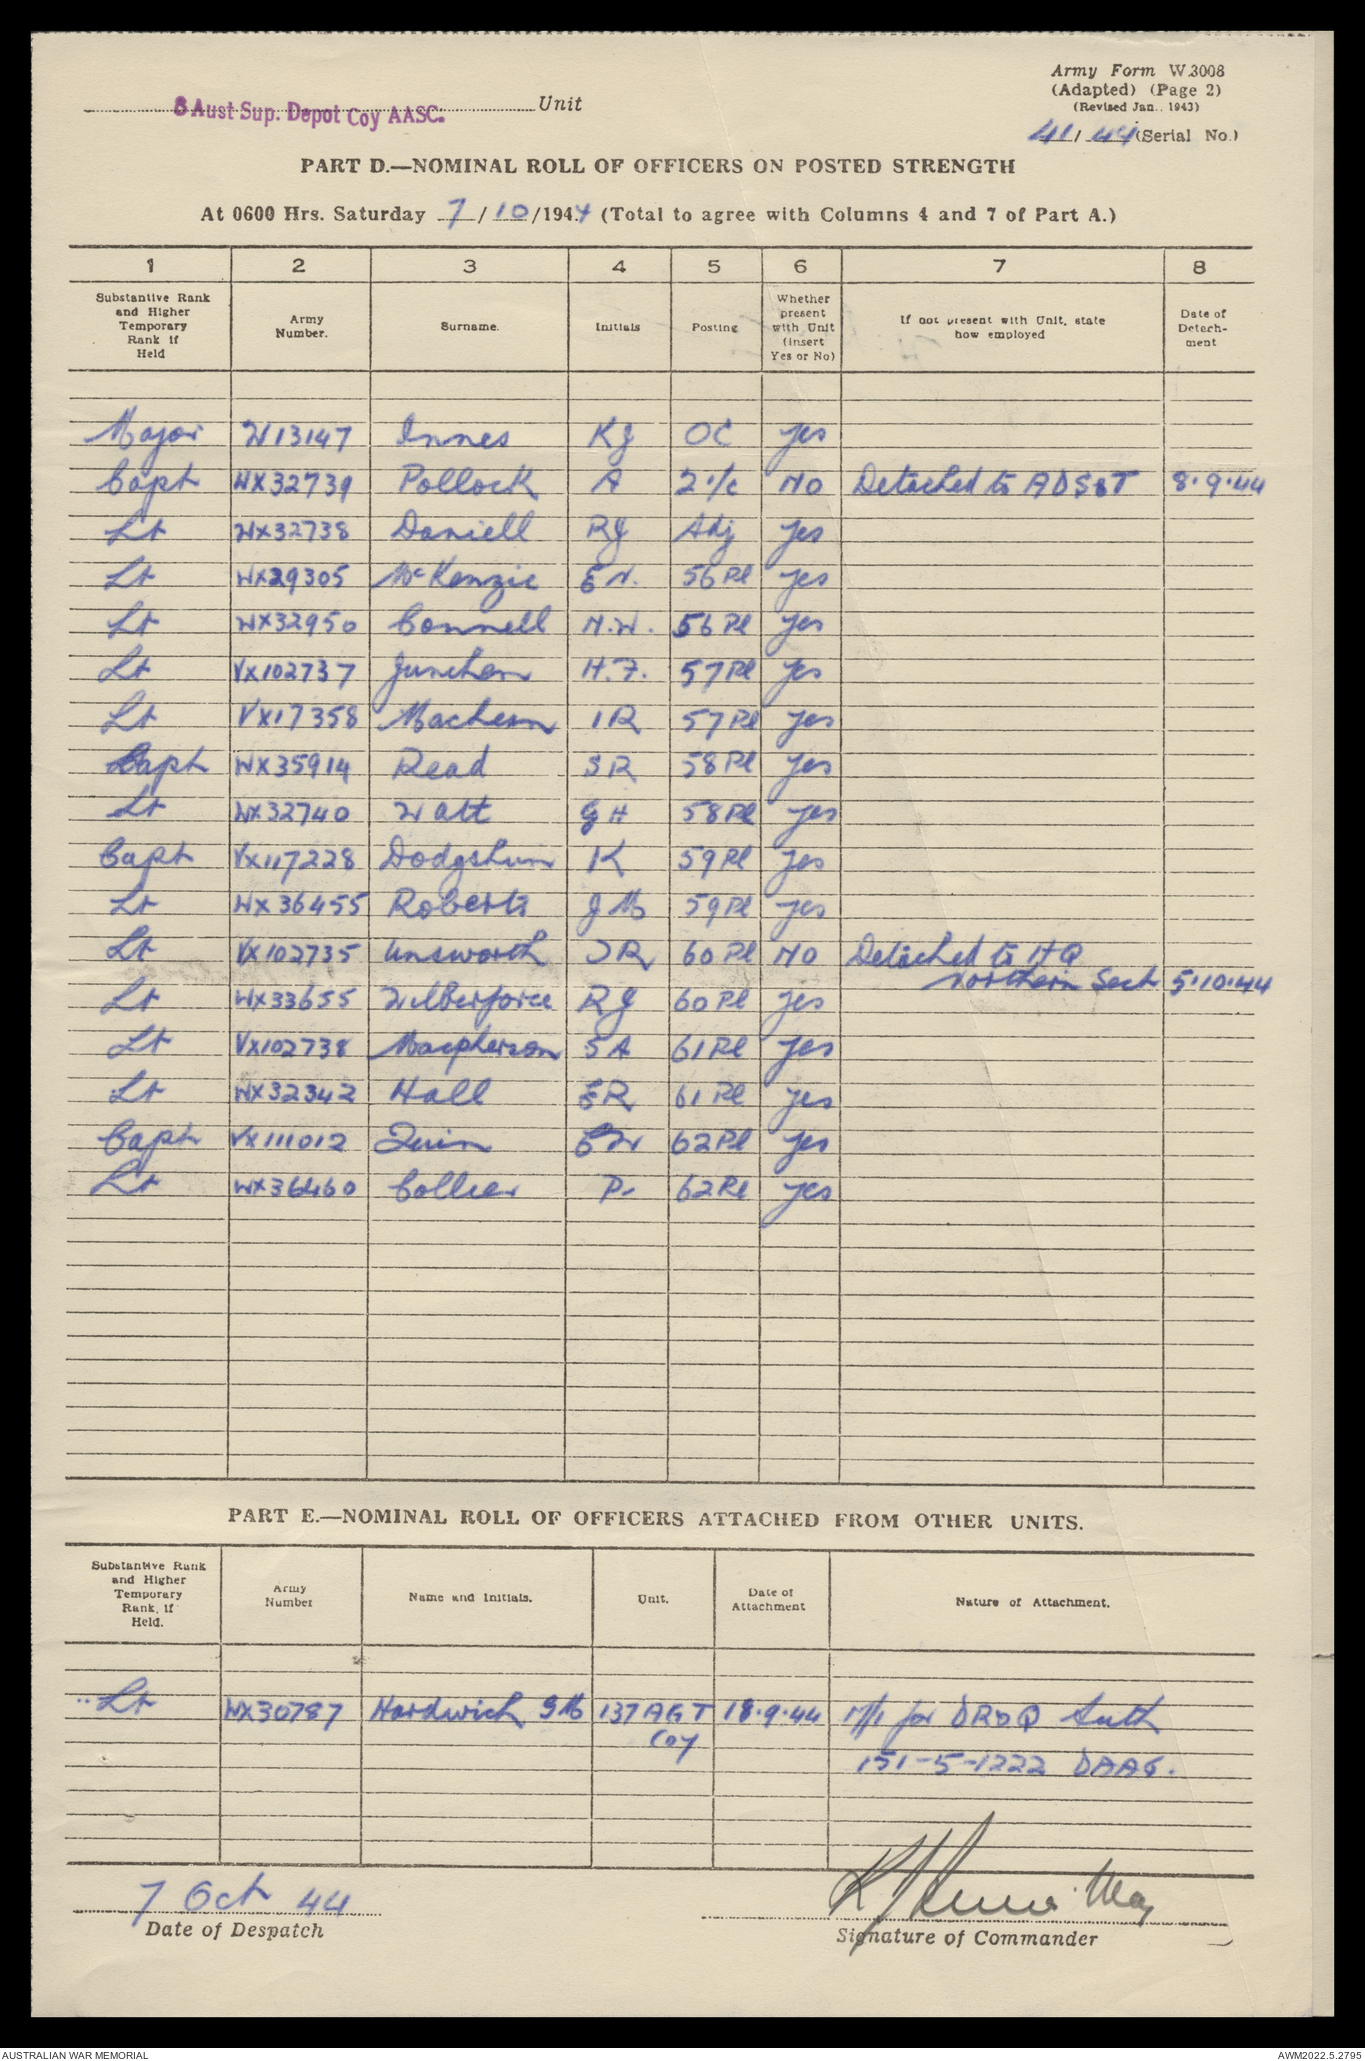 Army Form W.3008
(Adapted) (Page 2)
(Revised Jan., 1943)
41/44 (Serial No.)
8 Aust Sup. Depot Coy AASC. Unit
PART D.—NOMINAL ROLL OF OFFICERS ON POSTED STRENGTH
At 0600 Hrs. Saturday 7/10/1944 (Total to agree with Columns 4 and 7 of Part A.)
1 2 3 4 5 6 7 8
Substantive Rank and Higher Temporary Rank if Held
Army Number.
Surname.
Initials
Posting
Whether present with Unit (insert Yes or No)
If not present with Unit, state how employed
Date of Detachment
Major W13147 Innes KJ OC yes
Capt WX32739 Pollock A 2 i/c NO Detached to ADS&T 8.9.44
Lt WX32738 Daniell RJ Adj yes
Lt WX29305 McKenzie EN. 56 Pl yes
Lt WX32950 Connell N.W. 56 Pl yes
Lt VX102737 Junchen H.F. 57 Pl yes
Lt VX17358 Machem IR 57 Pl yes
Capt WX35914 Read SR 58 Pl yes
Lt WX32740 Watt GH 58 Pl yes
Capt VX117228 Dodgshun K 59 Pl yes
Lt WX36455 Roberts JM 59 Pl yes
Lt VX102735 Unsworth JR 60 Pl NO Detached to HQ
Northern Sect 5.10.44
Lt WX33655 Wilberforce RJ 60 Pl yes
Lt VX102738 Macpherson SA 61 Pl yes
Lt WX32342 Hall ER 61 Pl yes
Capt VX111012 Quin EW 62 Pl yes
Lt WX36460 Collier P. 62 Pl yes
PART E.—NOMINAL ROLL OF OFFICERS ATTACHED FROM OTHER UNITS.
Substantive Rank and Higher Temporary Rank, if Held.
Army Number
Name and Initials.
Unit.
Date of Attachment
Nature of Attachment.
Lt WX30787 Hardwich GM 137 AGT 18.9.44 for DRDQ Auth
Coy 151-5-1222 DAAG.
7 Oct 44
Date of Despatch
KJ Innes Maj
Signature of Commander
AUSTRALIAN WAR MEMORIAL
AWM2022.5.2795